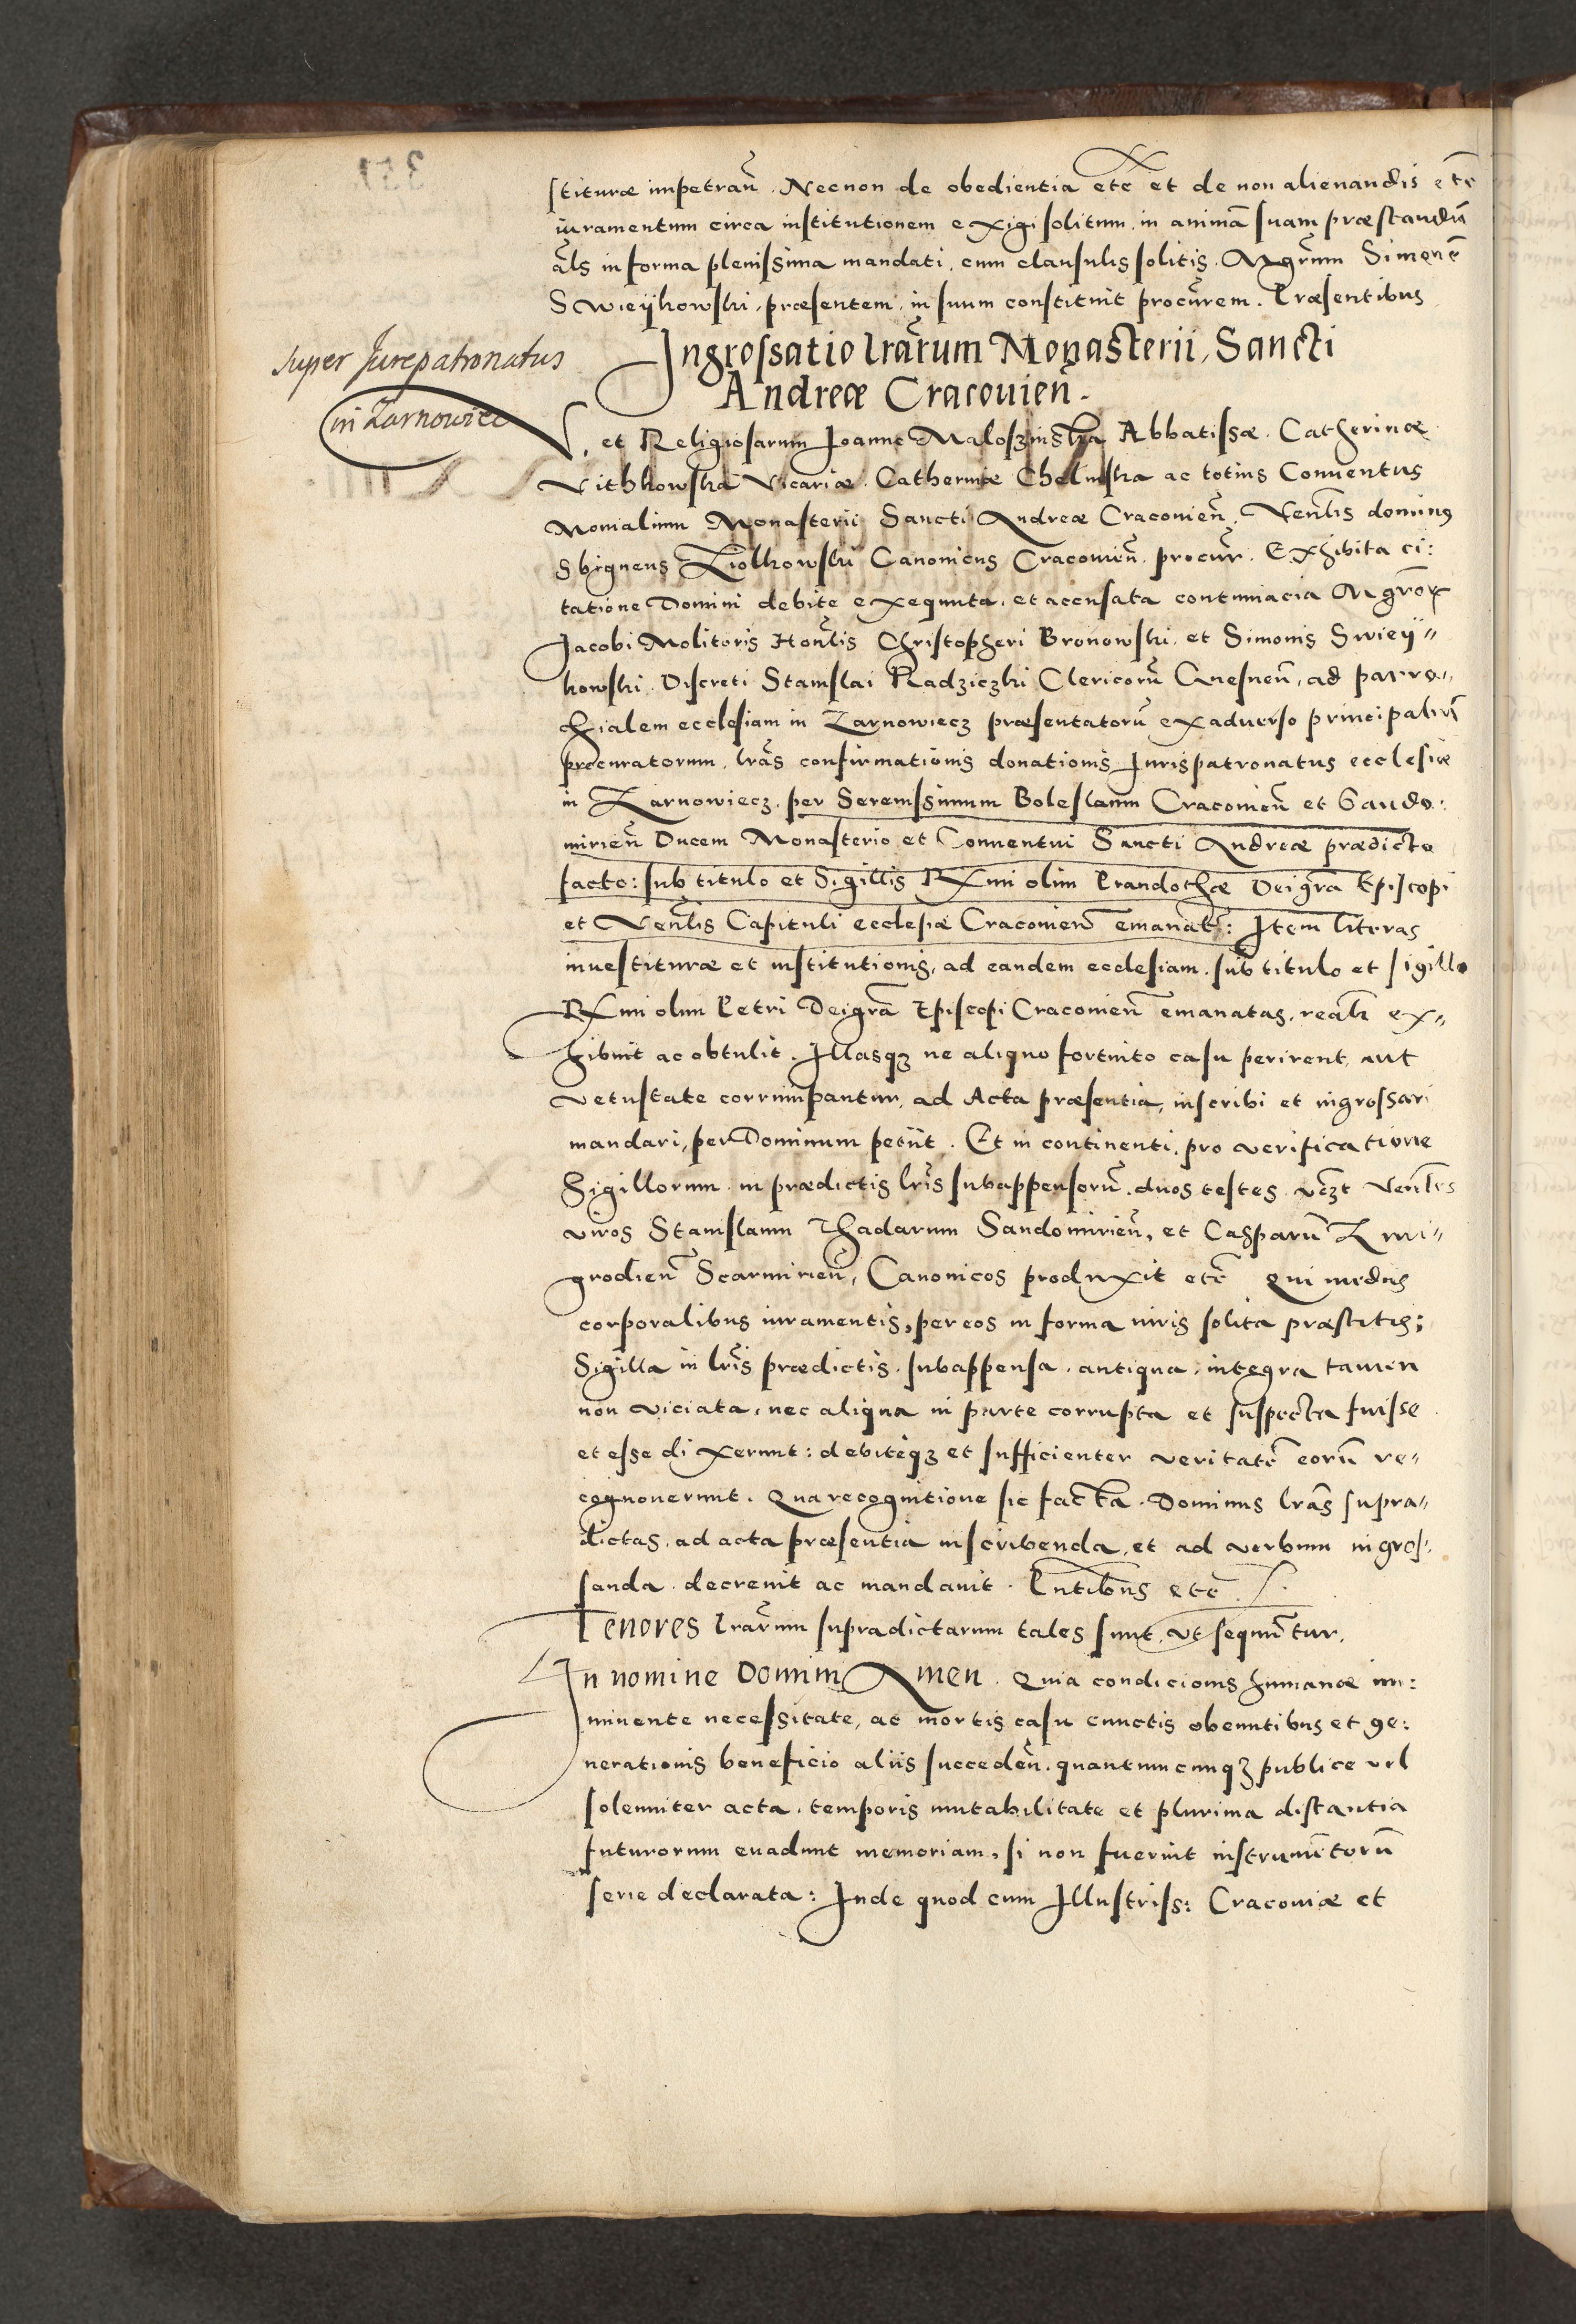 stituræ impetrañ. Necnon de obedientia etc̃ et de non alienandis etc̃
iuramentum circa institutionem exigi solitum in animã suam præstandũ
ãls in forma plenissima mandati, cum clausulis solitis. Mgr̃um Simonẽ
Swieykowski, præsentem, in suum constituit procũrem. Præsentibus
super Jurepatronatus
in Zarnowiec
Ingrossatio lrãrum Monasterii, Sancti
Andreæ Cracouieñ.
V. et Religiosarum Joannæ Maloszinska Abbatissæ. Catherinæ
Vithkowska Vicariæ. Catherinæ Chelmska ac totius Conuentus
Monialium Monasterii Sancti Andreæ Cracouieñ. Veñlis dominus
Sbigneus Ziolkowski Canonicus Cracouieñ. procur̃. Exhibita ci:
tatione Domini debite exequuta, et accusata contumacia Mgr̃oꝝ
Jacobi Molitoris Hoñlis Christopheri Bronowski, et Simonis Swiey„
kowski. Discreti Stanislai Radziczki Clericorũ Gnesneñ, ad parro„
chialem ecclesiam in Zarnowiecz præsentatorũ ex aduerso principaliũ
procuratorum, lrãs confirmationis donationis Jurispatronatus ecclesiæ
in Zarnowiecz, per Serenissimum Boleslaum Cracouieñ et Sando:
mirieñ Ducem Monasterio et Conuentui Sancti Andreæ prædicto
facto: sub titulo et Sigillis Rx̃mi olim Prandothæ Dei grã Episcopi
et Veñlis Capituli ecclesiæ Cracouieñ emanat̃: Item literas
inuestituræ et institutionis, ad eandem ecclesiam, sub titulo et sigillo
Rx̃mi olim Petri Dei grã Episcopi Cracouieñ emanatas, realr̃ ex„
hibuit ac obtulit. Illasqꝫ ne aliquo fortuito casu perirent, aut
vetustate corrumpantur, ad Acta præsentia, inscribi et ingrossari
mandari, per Dominum petiit. Et in continenti, pro verificatione
Sigillorum in prædictis lr̃is subappensorũ. duos testes vczt veñles
viros Stanislaum Thadarum Sandomirieñ, et Casparũ Zmi„
grodieñ Scarmirieñ, Canonicos produxit etc̃ Qui mediis
corporalibus iuramentis, per eos in forma iuris solita præstitis;
Sigilla in lr̃is prædictis, subappensa, antiqua, integra tamen
non viciata, nec aliqua in parte corrupta et suspecta fuisse
et esse dixerunt: debiteqꝫ et sufficienter veritatẽ eorũ re„
cognouerunt. Qua recognitione sic facta. Dominus lrãs supra„
dictas, ad acta præsentia inscribenda, et ad verbum ingros„
sanda, decreuit ac mandauit. Pñtibus etc̃
Tenores lrãrum supradictarum tales sunt, vt sequũtur.
In nomine Domini Amen. Quia condicionis humanæ im:
minente necessitate, ac mortis casu cunctis obeuntibus et ge:
nerationis beneficio aliis succedeñ. quantumcunqꝫ publice vel
solenniter acta, temporis mutabilitate et plurima distantia
futurorum euadunt memoriam, si non fuerint instrumẽtorũ
serie declarata: Inde quod cum Illustriss: Cracouiæ et